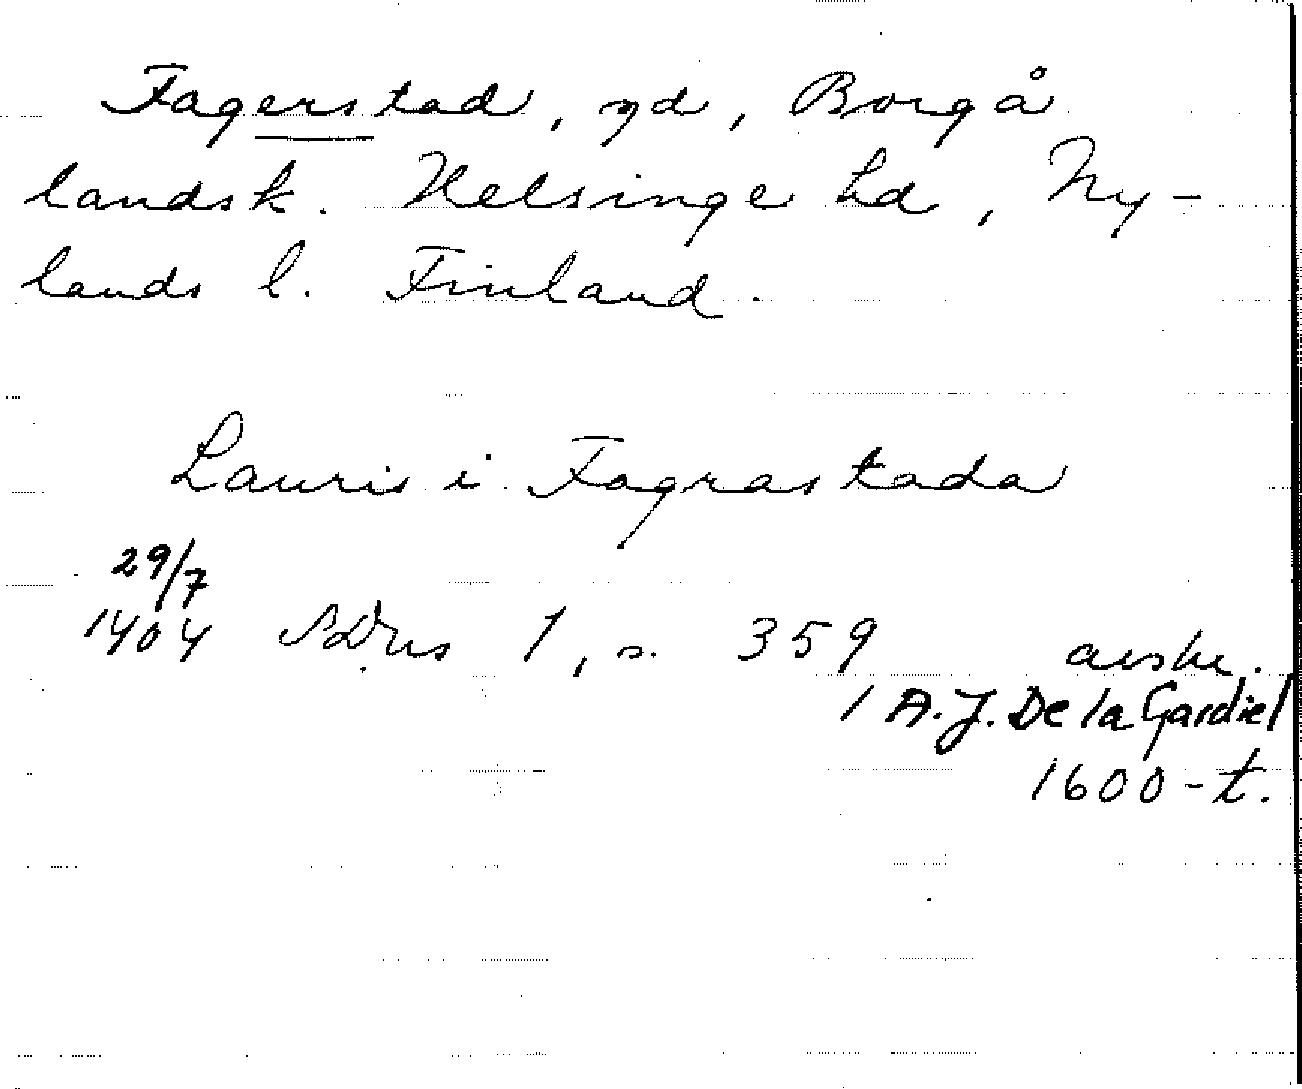 Fagerstad, gd, Borgå
landsk. Helsinge hd, Ny-
lands l. Finland.
Lauris i Fagrastada
29/7
1404 SDns 1, s. 359 avskr.
/ A.J. De la Gardie/
1600-t.